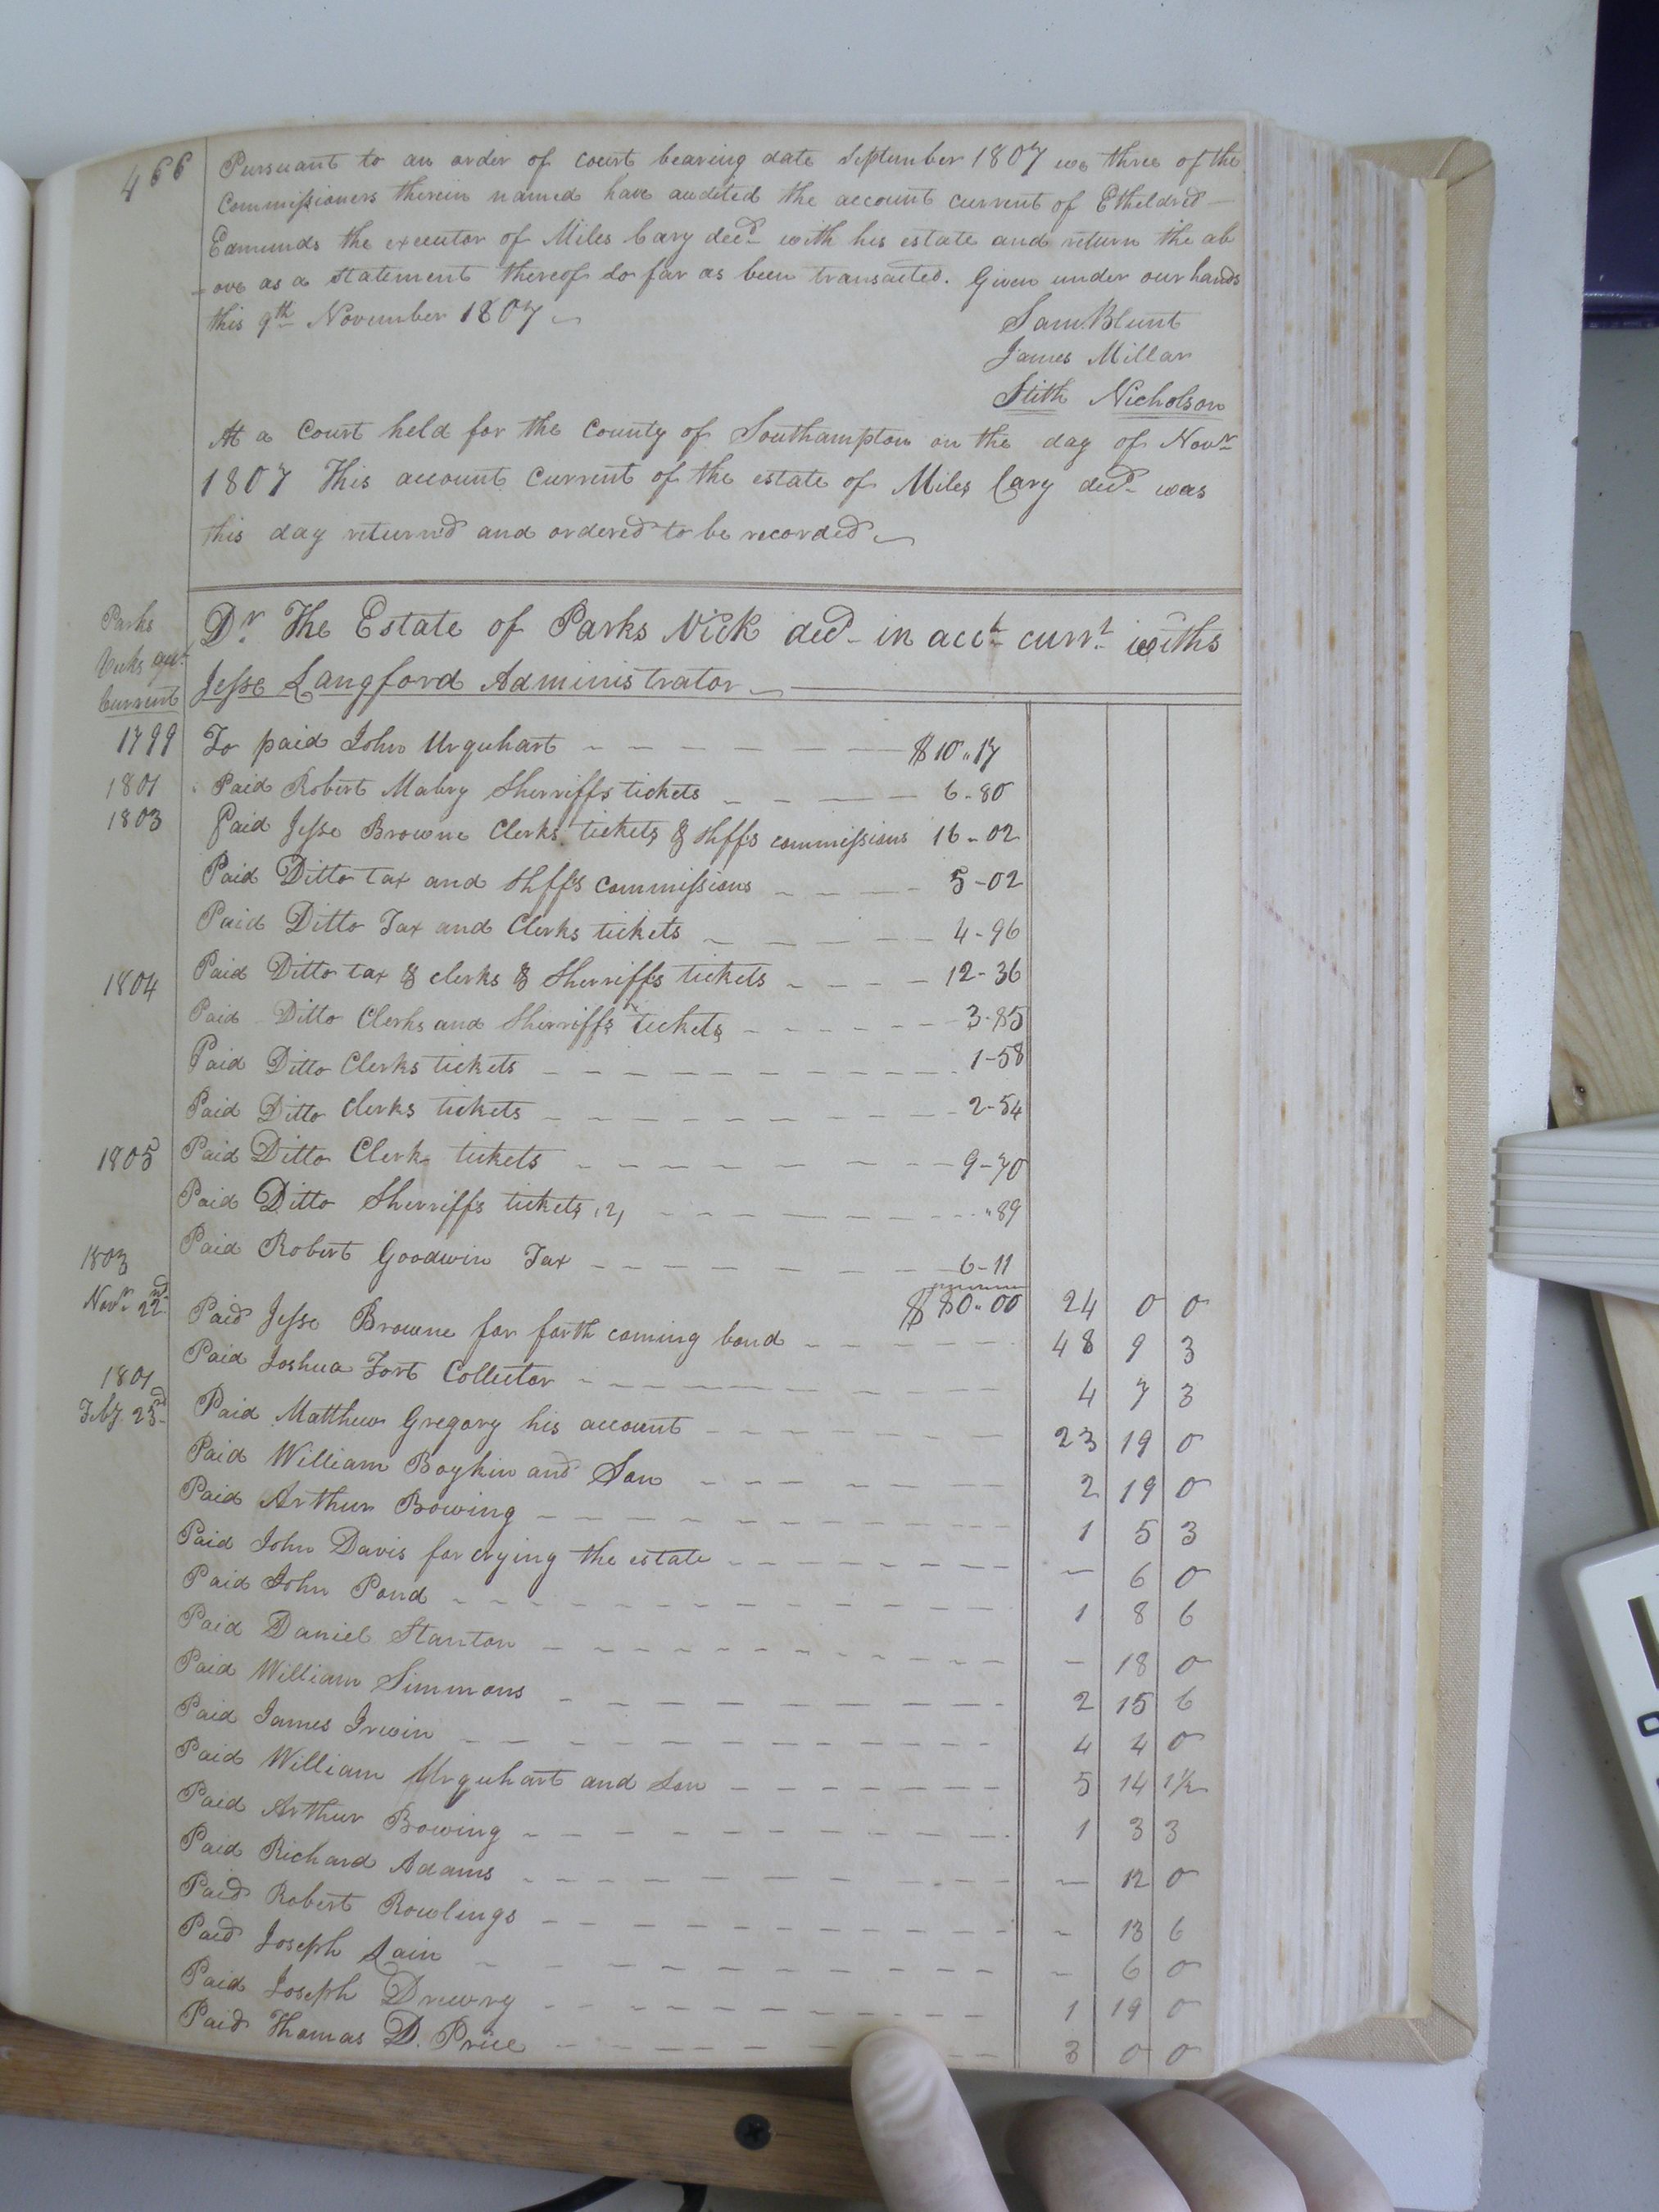 466
Pursuant to an order of court bearing date September 1807 we three of the
Commissioners therein named have audited the account current of Etheldred
Edmunds the executor of Miles Cary decd with his estate and return the ab
-ove as a statement thereof so far as been transacted. Given under our hands
this 9th November 1807
Sam Blunt
James Millar
Stith Nicholson
At a Court held for the County of Southampton on the day of Novr
1807 This account current of the estate of Miles Cary decd was
this day returnd and ordered to be recorded
Parks
Nicks
Current
Dr. The Estate of Parks Nick decd in acct currt withs
Jesse Langford Administrator
1799 To paid John Urquhart $10..17
1801 Paid Robert Mabry Sherriffs tickets 6-80
1803 Paid Jesse Browne Clerks tickets & shffs commissions 16-02
Paid Ditto tax and shffs commissions 5-02
Paid Ditto Tax and Clerks tickets 4-96
1804 Paid Ditto tax & clerks & Sherriffs tickets 12-36
Paid Ditto Clerks and Sherriffs tickets 3-85
Paid Ditto Clerks tickets 1-58
Paid Ditto clerks tickets 2-54
1805 Paid Ditto Clerk tickets 9-70
Paid Ditto Sherriffs tickets ,2, "89
Paid Robert Goodwin Tax 6-11
$80..00 24 0 0
1803
Novr 22nd Paid Jesse Browne for forth coming bond 48 9 3
Paid Joshua Fort Collector 4 7 3
1801
Feby 23rd Paid Matthew Gregory his account 23 19 0
Paid William Boykin and Son 2 19 0
Paid Arthur Bowing 1 5 3
Paid John Davis for crying the estate - 6 0
Paid John Pond 1 8 6
Paid Daniel Stanton - 18 0
Paid William Simmons 2 15 6
Paid James Irwin 4 4 0
Paid William Urquhart and Son 5 14 1½
Paid Arthur Bowing 1 3 3
Paid Richard Adams - 12 0
Paid Robert Rowlings - 13 6
Paid Joseph Lain - 6 0
Paid Joseph Drewry 1 19 0
Paid Thomas D. Price 3 0 0